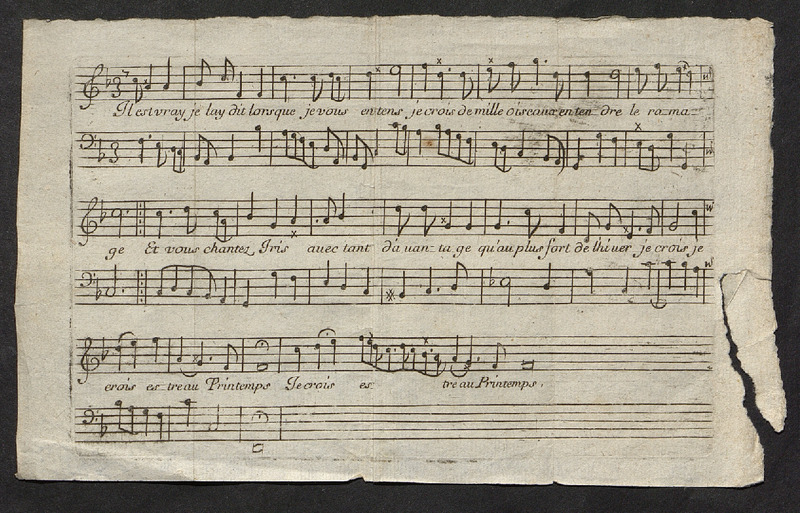 Il est vray je luy dit lorsque je vous entens je crois de mille oiseaux enten dre le ra-ma-
ge Et vous chantez Iris avec tant d'a van-ta ge qu'au plus fort de lhiver je crois je
crois es-tre au Printemps Je crois es- tre au Printemps.